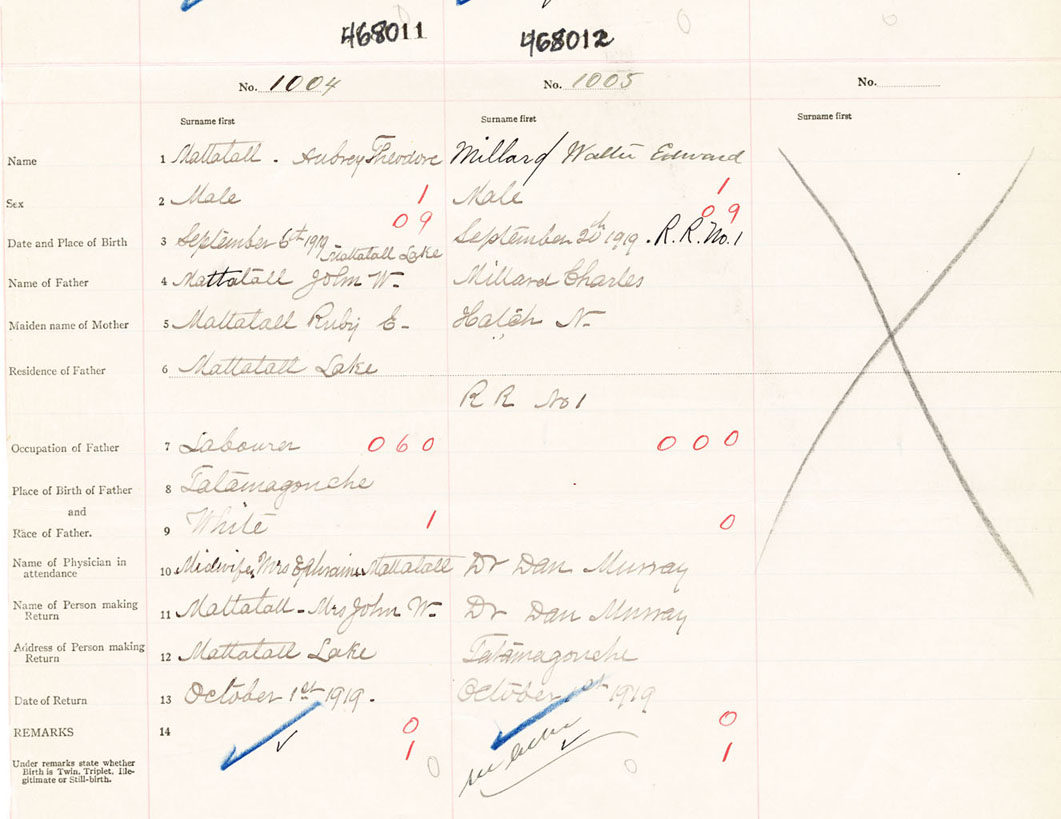 468011 468012
No. 1004 No. 1005 No.
Surname first Surname first Surname first
Name 1 Mattatall . Aubrey Theodore Millard Walter Edward
Sex 2 Male 1 Male 1
Date and Place of Birth 3 September 6th 1919 - Mattatall Lake 09 September 20th 1919 . R.R. No. 1 09
Name of Father 4 Mattatall John W. Millard Charles
Maiden name of Mother 5 Mattatall Ruby E - Hatch N -
Residence of Father 6 Mattatall Lake
R R No 1
Occupation of Father 7 Labourer 060 000
Place of Birth of Father 8 Tatamagouche
and
Race of Father. 9 White 1 0
Name of Physician in
attendance 10 Midwife, Mrs Ephraim Mattatall Dr Dan Murray
Name of Person making
Return 11 Mattatall - Mrs John W. Dr Dan Murray
Address of Person making
Return 12 Mattatall Lake Tatamagouche
Date of Return 13 October 1st 1919. October 1st 1919
REMARKS 14 0 0
Under remarks state whether
Birth is Twin, Triplet, Ille-
gitimate or Still-birth. 1 0 0 1